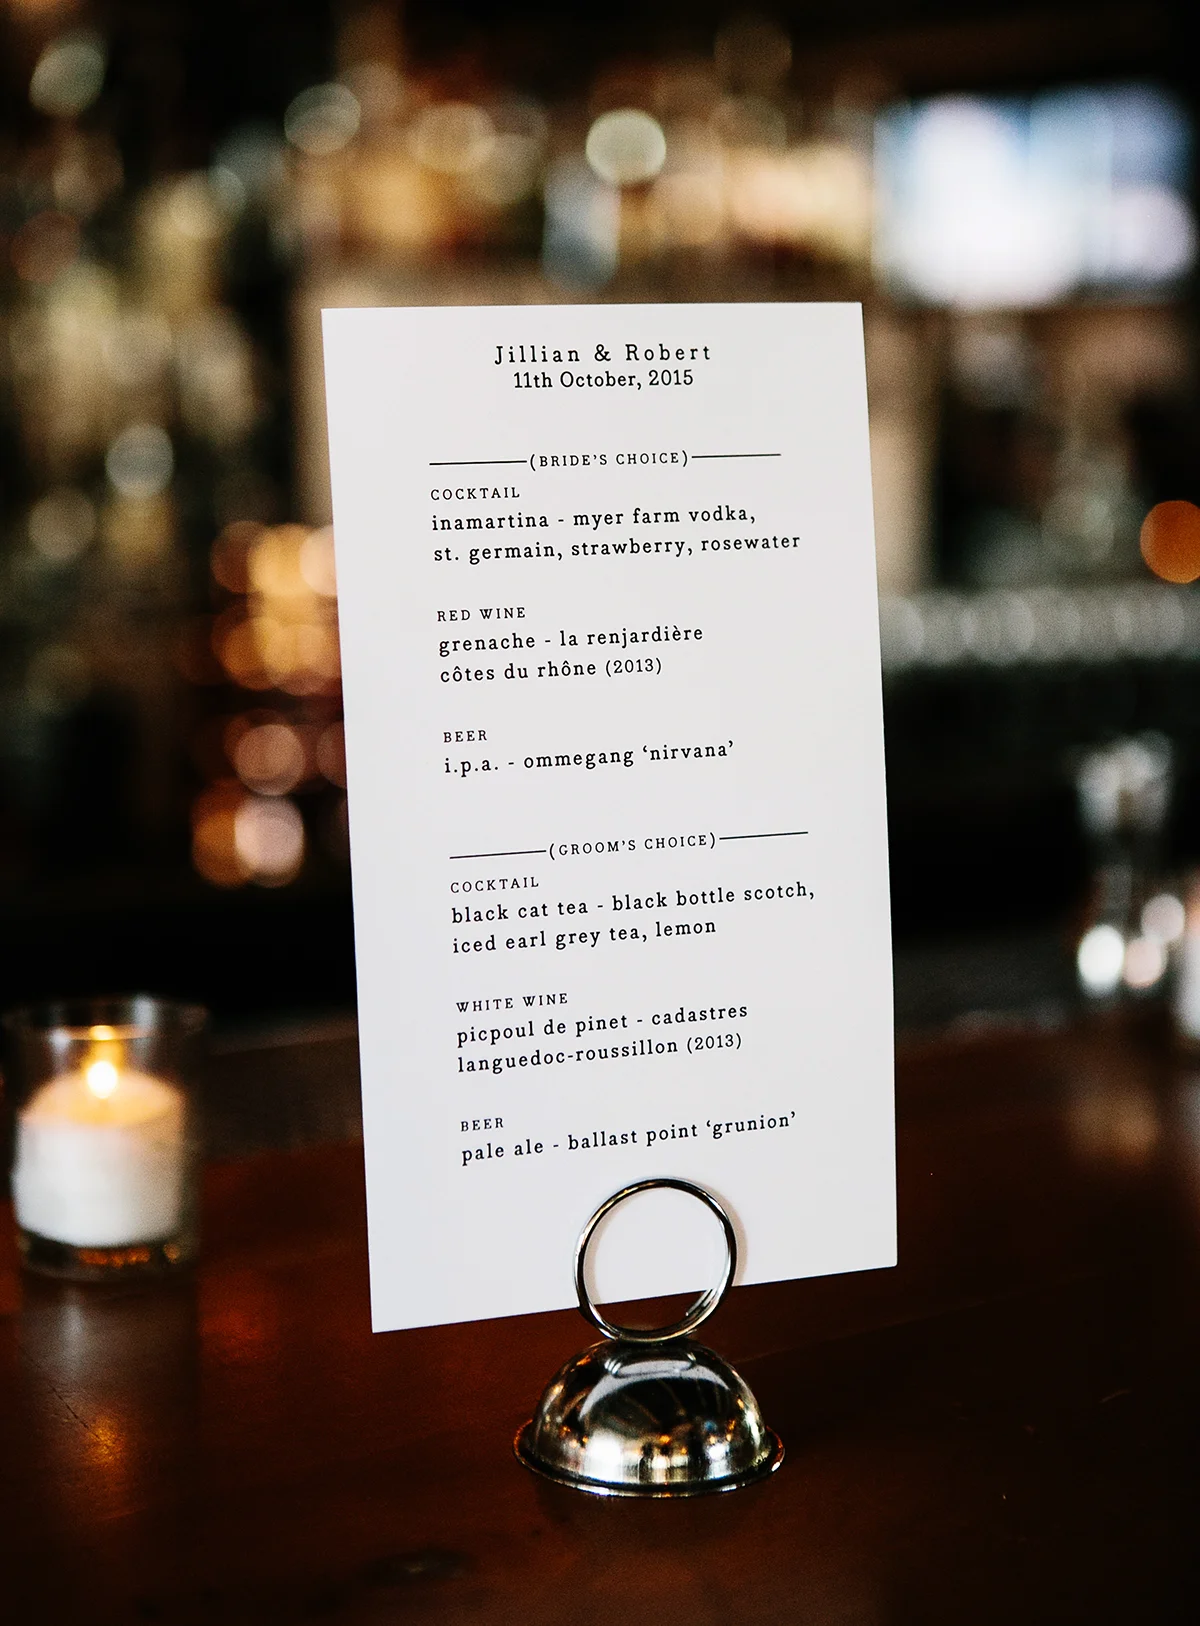 Jillian & Robert
11th October, 2015
(BRIDE'S CHOICE)
COCKTAIL
inamartina - myer farm vodka,
st. germain, strawberry, rosewater
RED WINE
grenache - la renjardière
côtes du rhône (2013)
BEER
i.p.a. - ommegang ‘nirvana’
(GROOM'S CHOICE)
COCKTAIL
black cat tea - black bottle scotch,
iced earl grey tea, lemon
WHITE WINE
picpoul de pinet - cadastres
languedoc-roussillon (2013)
BEER
pale ale - ballast point ‘grunion’